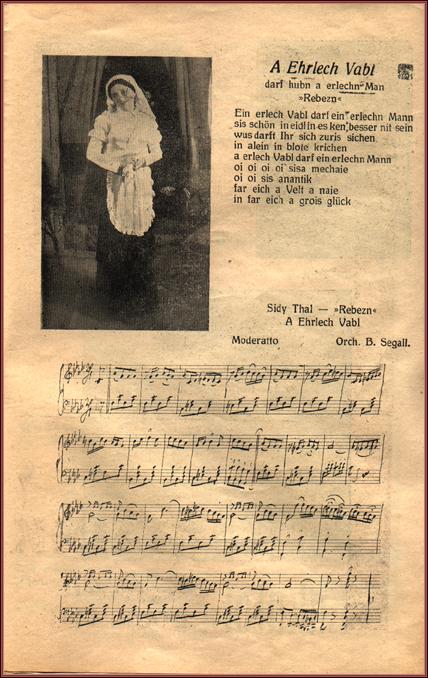 A Ehrlech Vabl
darf hubn a erlechn Man
»Rebezn«
Ein erlech Vabl darf ein erlechn Mann
sis schön in eidl in es ken besser nit sein
wus darft Ihr sich zuris sichen
in alein in blote krichen
a erlech Vabl darf ein erlechn Mann
oi oi oi oi sisa mechaie
oi oi sis anantik
far eich a Velt a naie
in far eich a grois glück
Sidy Thal — »Rebezn«
A Ehrlech Vabl
Moderatto Orch. B. Segall.